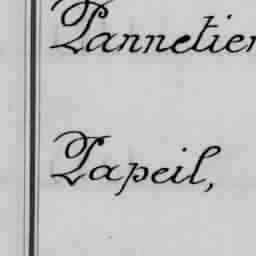 Pannetier
Papeil,